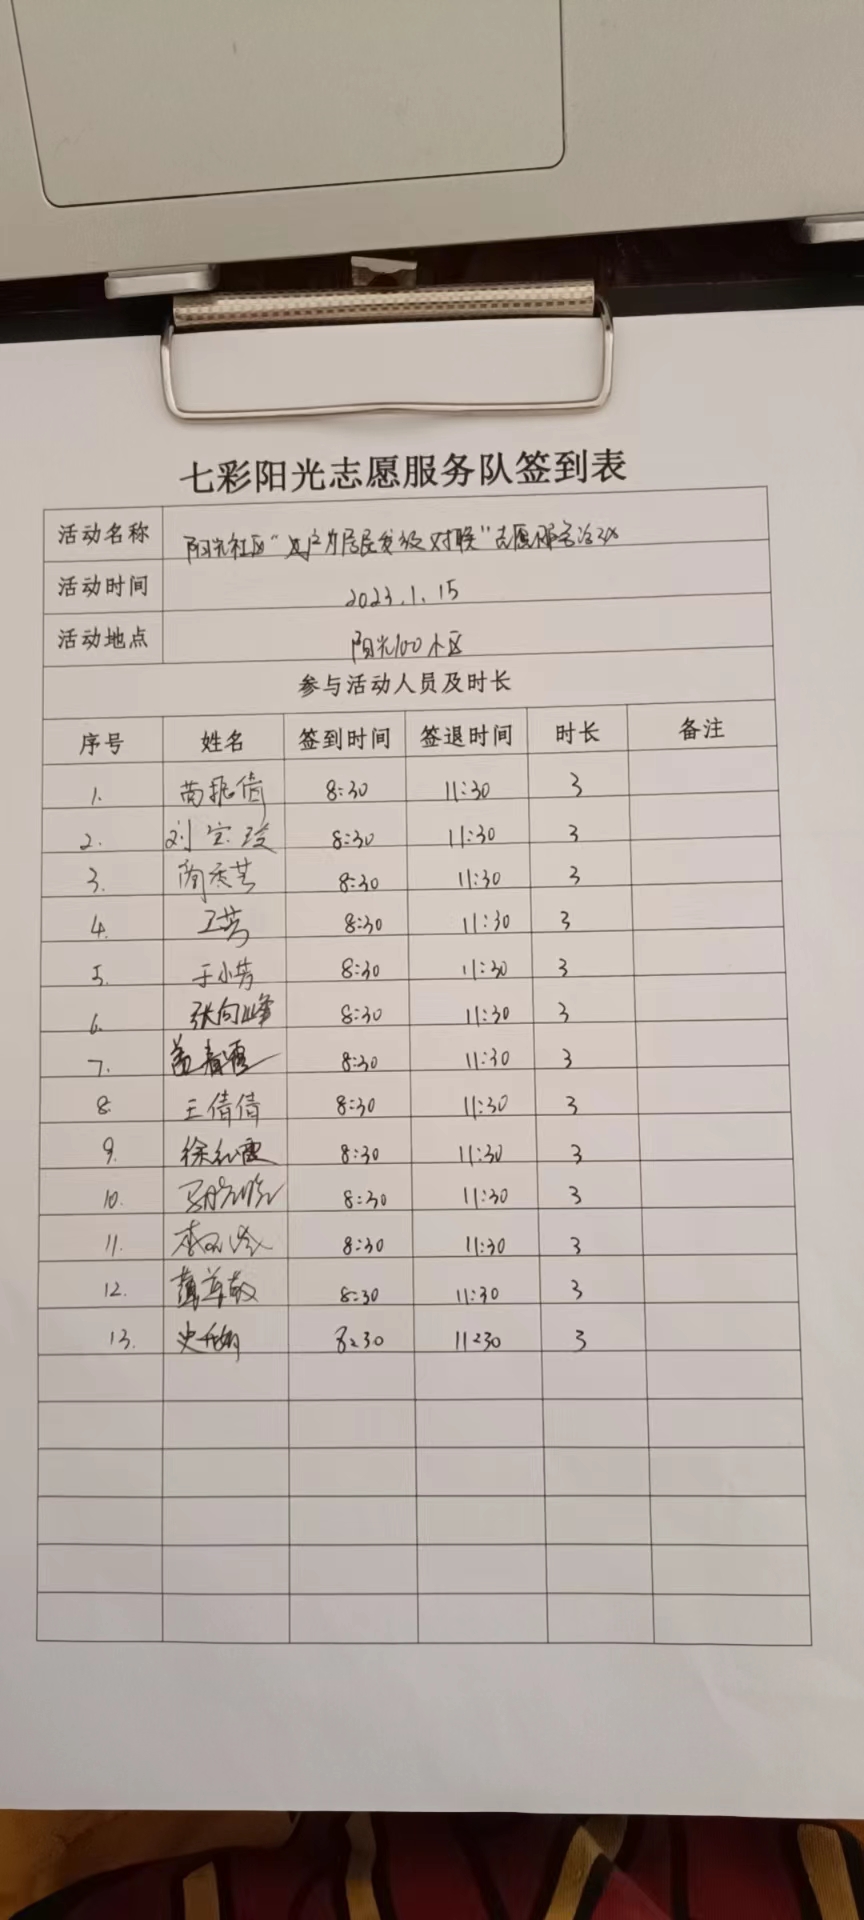 七彩阳光志愿服务队签到表
活动名称 阳光社区“为居民发放对联”志愿服务活动
活动时间 2023.1.15
活动地点 阳光100小区
参与活动人员及时长
序号 姓名 签到时间 签退时间 时长 备注
1. 苗振倩 8:30 11:30 3
2. 刘宝玲 8:30 11:30 3
3. 8:30 11:30 3
4. 王芳 8:30 11:30 3
5. 于小芳 8:30 11:30 3
6. 张向峰 8:30 11:30 3
7. 盖春霞 8:30 11:30 3
8. 王倩倩 8:30 11:30 3
9. 徐红霞 8:30 11:30 3
10. 8:30 11:30 3
11. 8:30 11:30 3
12. 8:30 11:30 3
13. 8:30 11:30 3